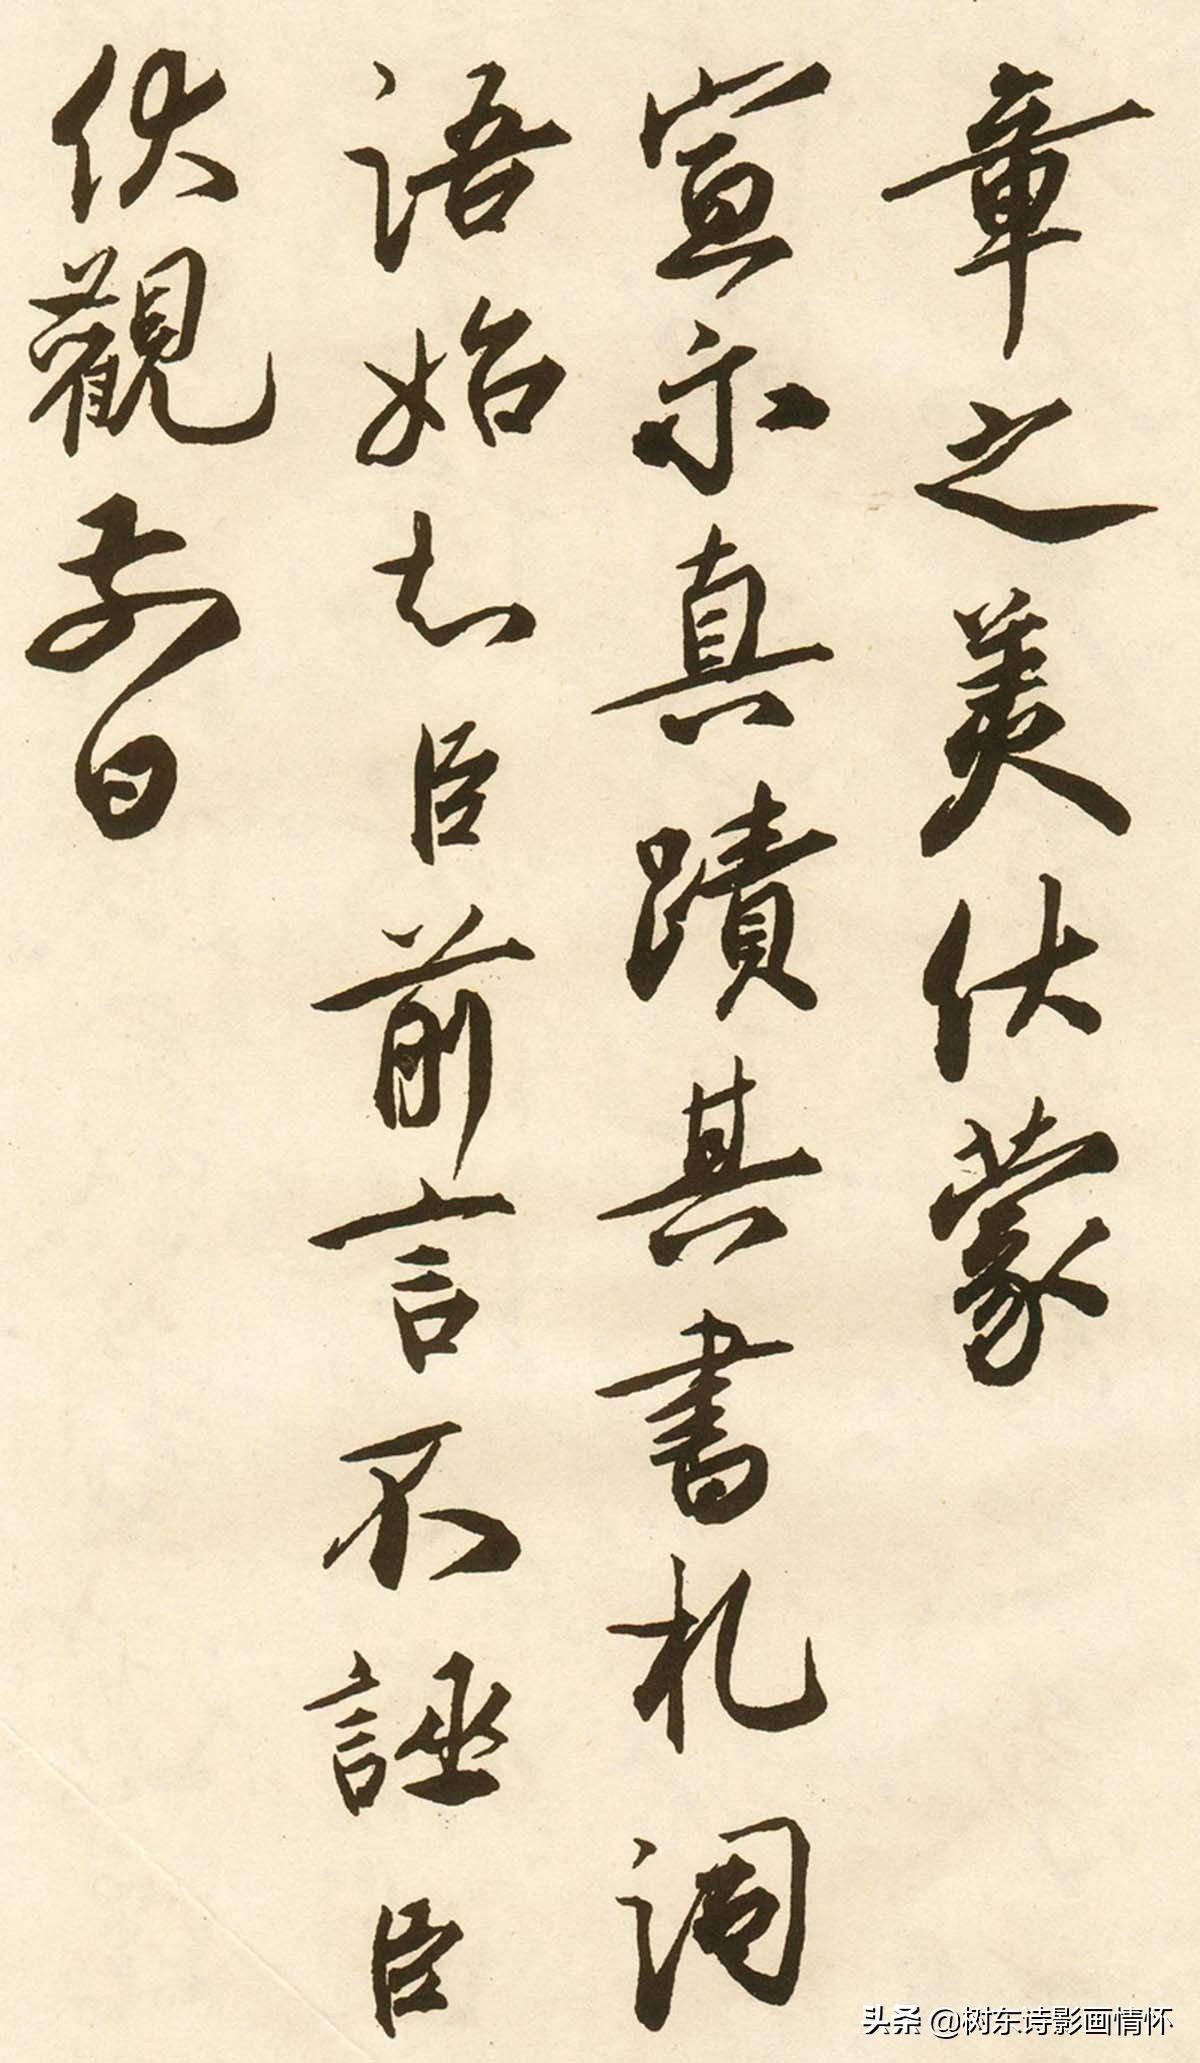 章之美伏蒙
宣示真蹟其書札詞
語始知臣前言不誣臣
伏觀前日
头条 @树东诗影画情怀